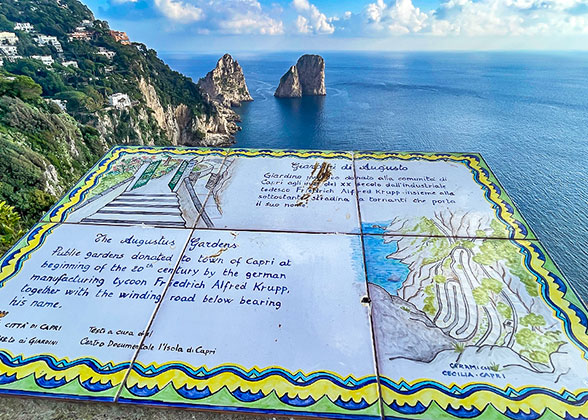 Giardini di Augusto
Giardino donato alla comunità di
Capri agli del XX secolo dall'industriale
tedesco Friedrich Alfred Krupp insieme alla
sottostante stradina a tornanti che porta
il suo nome.
The Augustus Gardens
Public gardens donated to town of Capri at
beginning of the 20th century by the german
manufacturing tycoon Friedrich Alfred Krupp,
together with the winding road below bearing
his name.
CITTÀ DI CAPRI
ai GIARDINI
Testi a cura del
Centro Documentale l'Isola di Capri
CERAMICHE
CECILIA-CAPRI